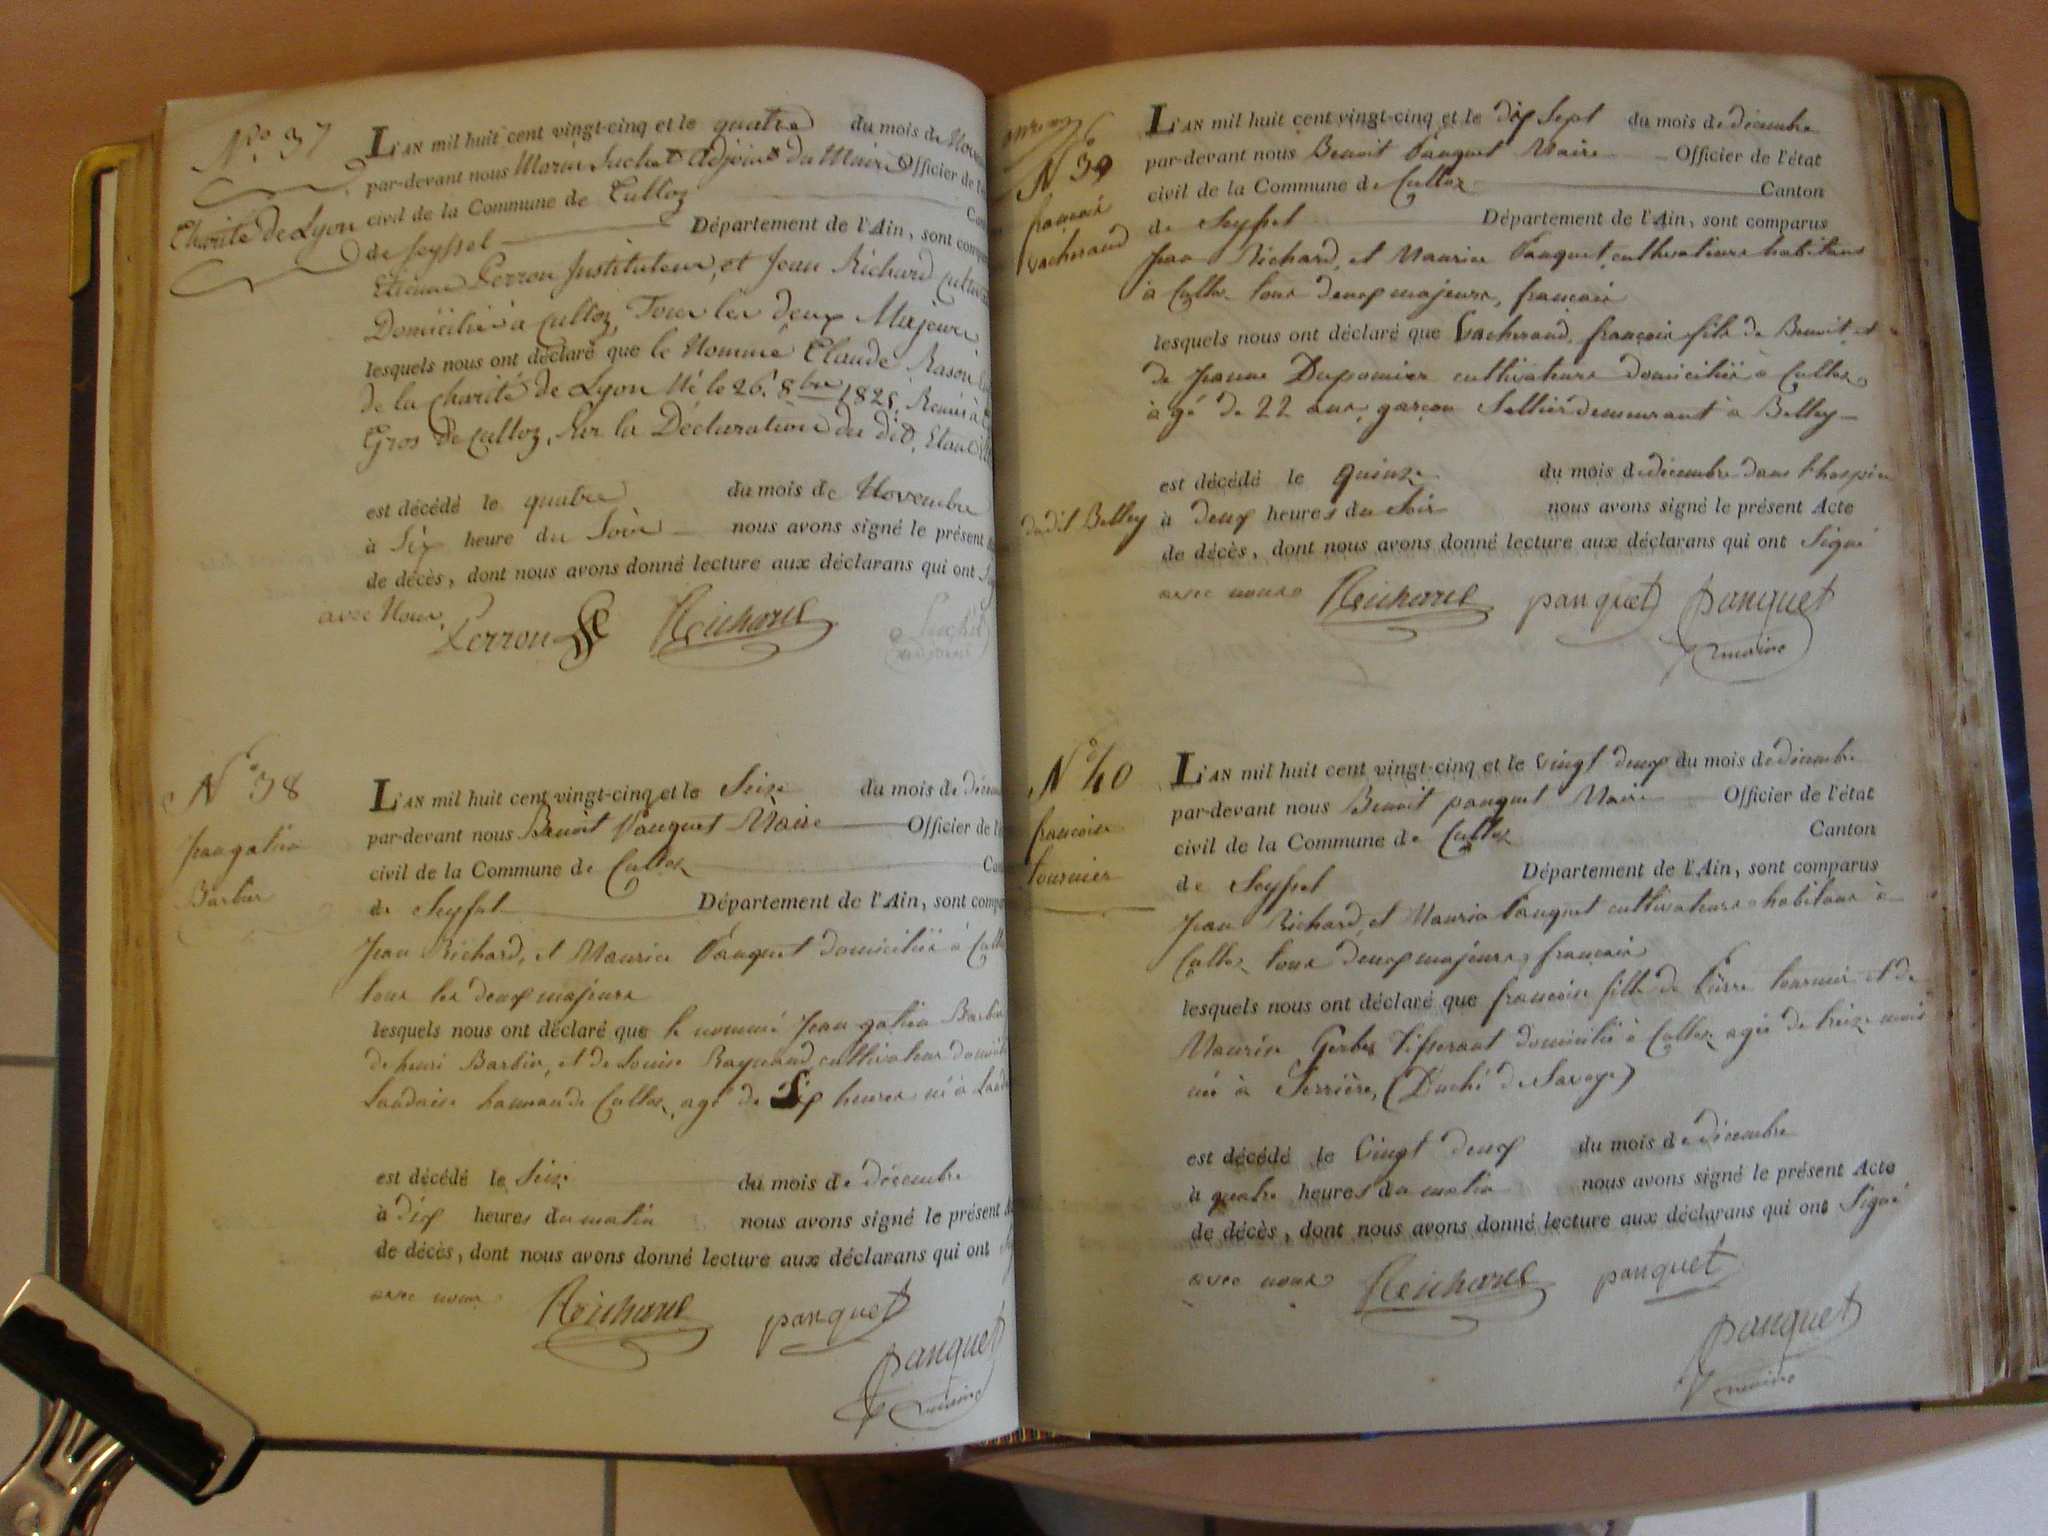 N.o 37
Charité de Lyon
L'AN mil huit cent vingt-cinq et le quatre du mois de
par-devant nous Marin Suchet Adjoint du Maire Officier de
civil de la Commune de Culloz
de Seyssel Département de l'Ain, sont
Etienne Perron Instituteur, et Jean Richard
Domicilié à Culloz, Tous les deux Majeurs
lesquels nous ont déclaré que le Nommé Claude
de la Charité de Lyon Né le 26. 8bre 1825. Remis à
Gros de Culloz, Sur la Déclaration du dit
est décédé le quatre du mois de Novembre
à Six heure du Soir nous avons signé le présent
de décès, dont nous avons donné lecture aux déclarans qui ont
avec Nous.
Perron Reichard Suchet
N.o 38
Jean
Barbin
L'AN mil huit cent vingt-cinq et le Seize du mois de
par-devant nous Benoit Panquet Maire Officier de
civil de la Commune de Culloz
de Seyssel Département de l'Ain, sont
Jean Richard, et Maurice Panquet domiciliés à
tous les deux majeurs
lesquels nous ont déclaré que le nommé Jean
de henri Barbin, et de Louise cultivateur
Landaise hameau de Culloz, agé de Six heures né à
est décédé le Seize du mois de décembre
à dix heures du matin nous avons signé le présent
de décès, dont nous avons donné lecture aux déclarans qui ont
avec nous
Reichard panquet
panquet
maire
N 39
françois
vacherand
L'AN mil huit cent vingt-cinq et le dix Sept du mois de décembre
par-devant nous Benoit Panquet Maire Officier de l'état
civil de la Commune de Culloz Canton
de Seyssel Département de l'Ain, sont comparus
Jean Richard, et Maurice Panquet, cultivateurs habitans
à Culloz tous deux majeurs, français
lesquels nous ont déclaré que Vacherand, françois fils de Benoit, et
de Jeanne Dupomier cultivateurs domiciliés à Culloz,
âgé de 22 ans, garçon Sellier demeurant à Belley
est décédé le quinze du mois de décembre dans l'hospice
dudit Belley à deux heures du Soir nous avons signé le présent Acte
de décès, dont nous avons donné lecture aux déclarans qui ont Signé
avec nous Reichard panquet panquet
maire
N.o 40
francoise
tournier
L'AN mil huit cent vingt-cinq et le vingt deux du mois de décembre
par-devant nous Benoit panquet Maire Officier de l'état
civil de la Commune de Culloz Canton
de Seyssel Département de l'Ain, sont comparus
Jean Richard, et Maurice Panquet cultivateurs habitans à
Culloz tous deux majeurs français
lesquels nous ont déclaré que francoise fille de Pierre tournier et de
Maurise Gerbes Tisserant domicilié à Culloz agée de treize mois
née à Serrière, (Duché de Savoye)
est décédé le vingt deux du mois de décembre
à quatre heures du matin nous avons signé le présent Acte
de décès, dont nous avons donné lecture aux déclarans qui ont Signé
avec nous Reichard panquet
panquet
maire